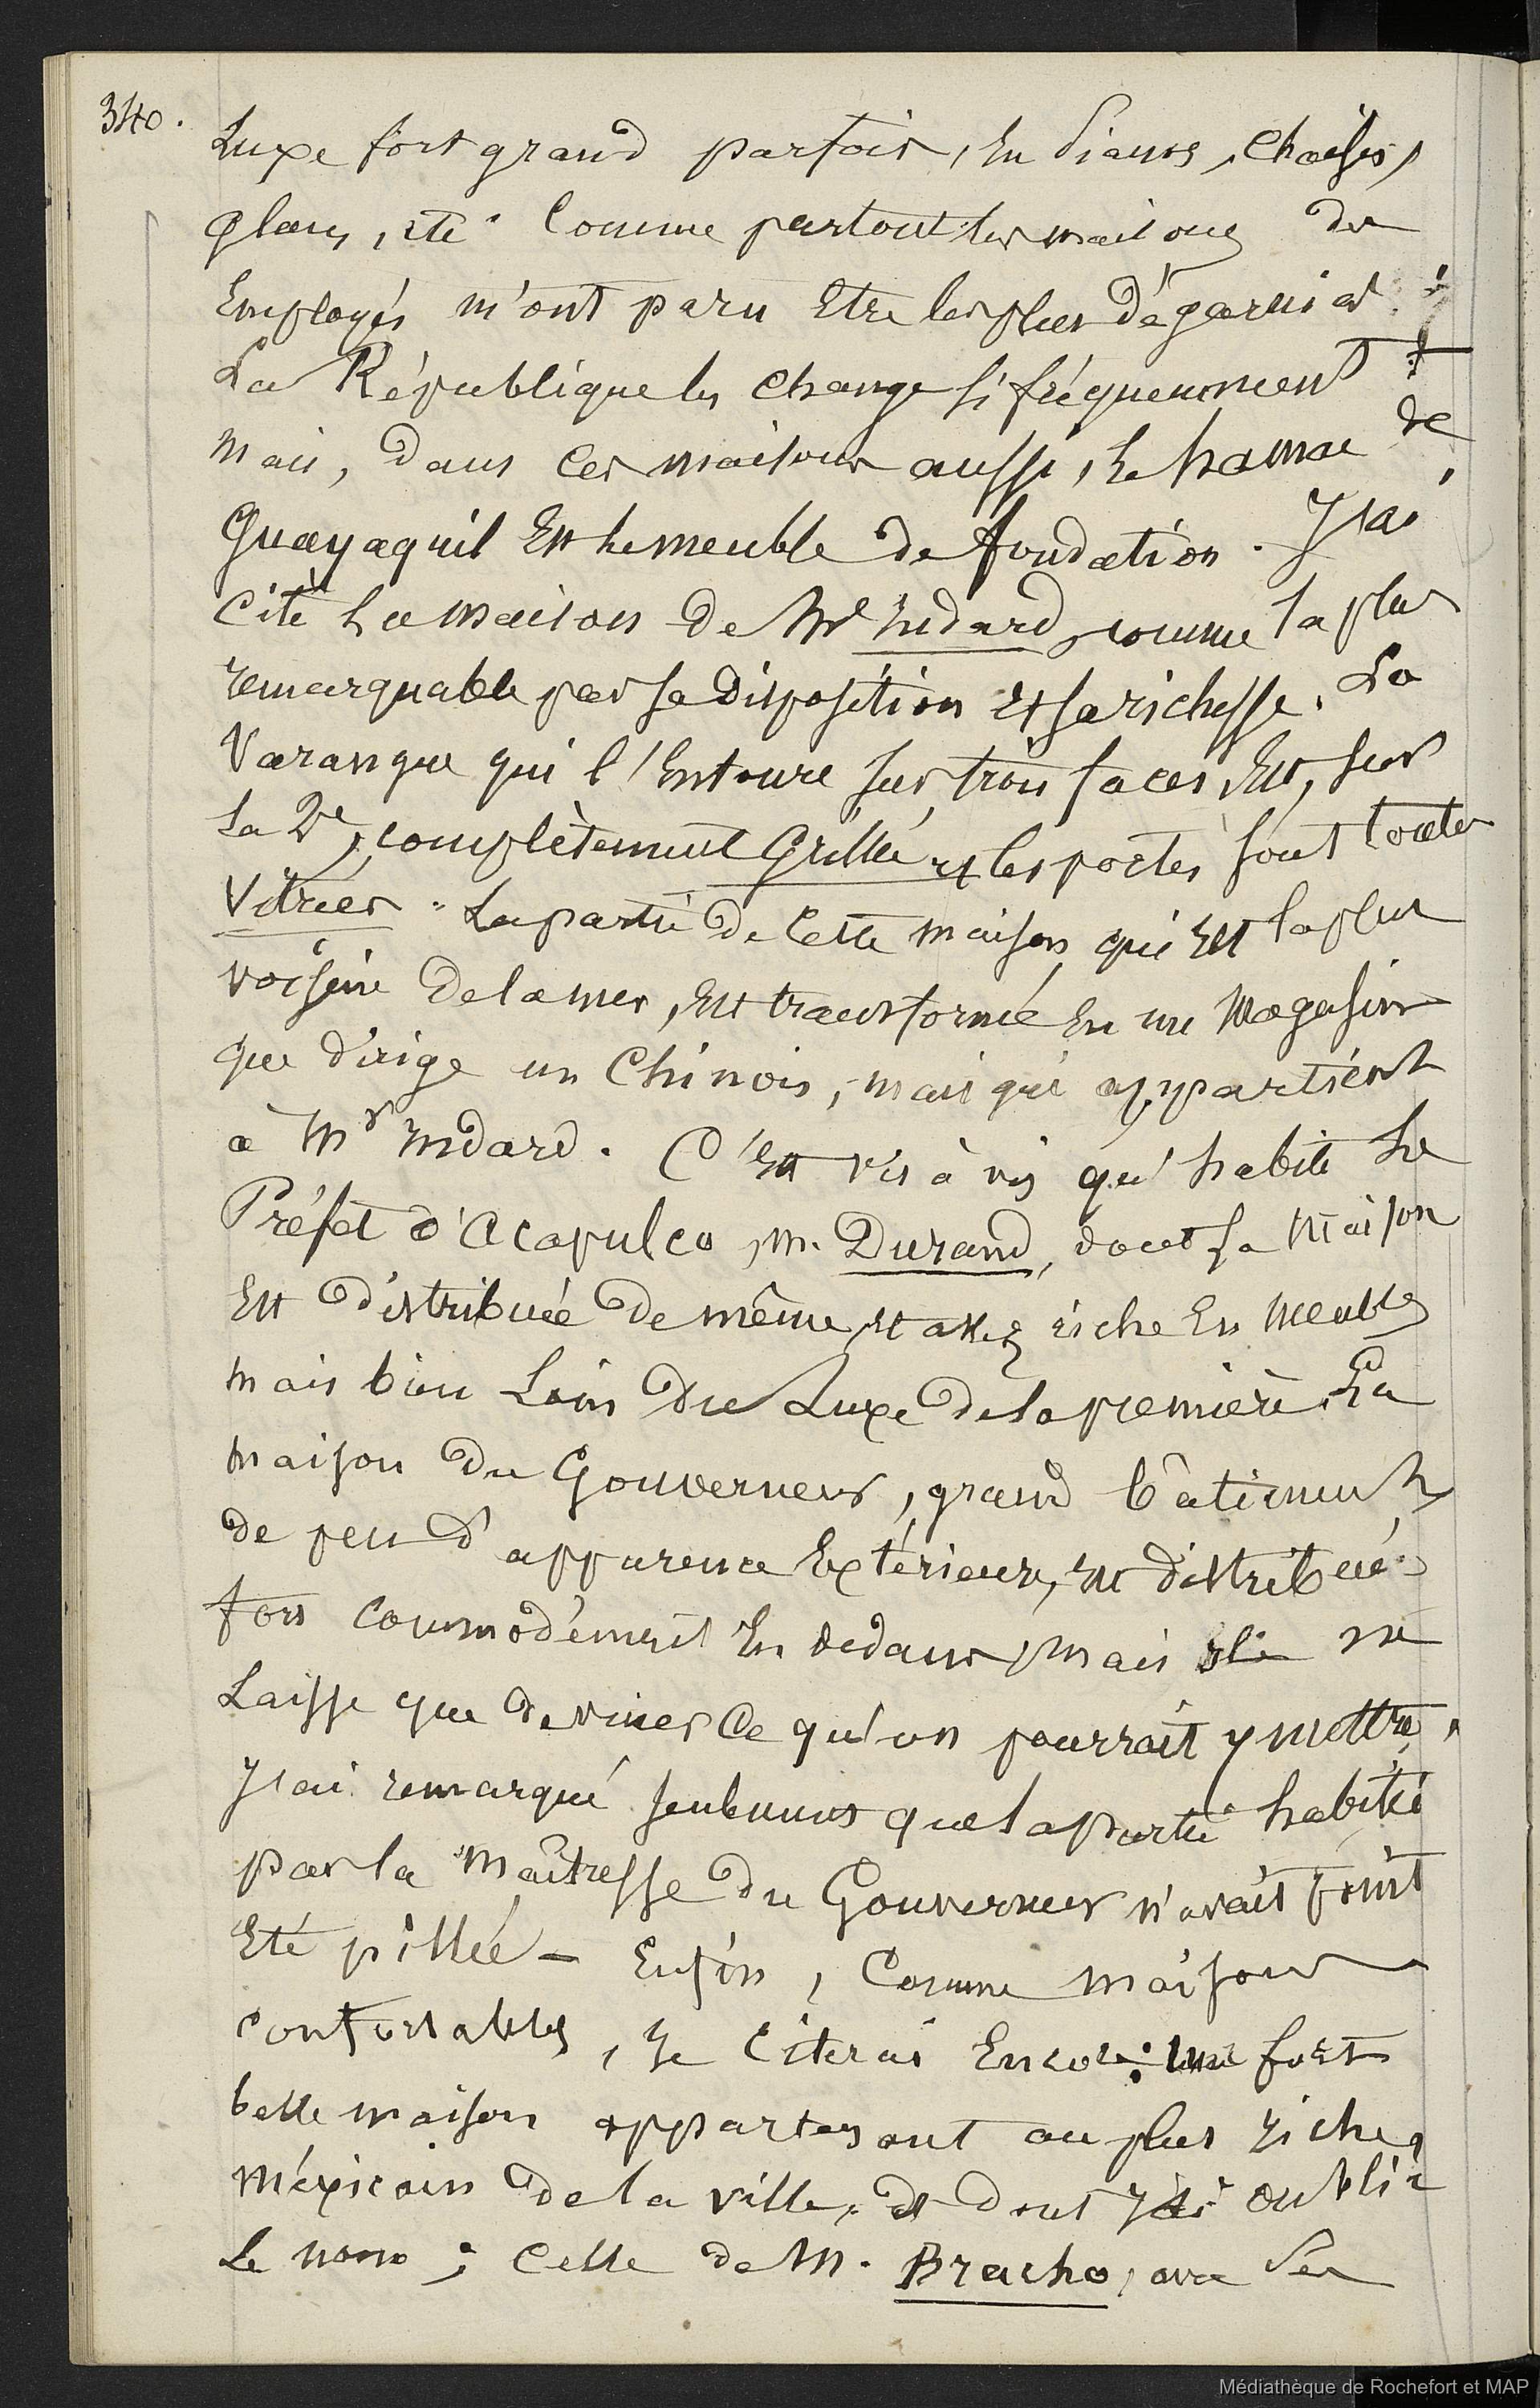 340.
Luxe fort grand parfois, en Pianos, Chaises,
glaces, etc. Comme partout les maisons des
Employés m'ont paru Etre les plus dégarnies.
La République les change si fréquemment !
mais, dans ces maisons aussi, le hamac de
Guayaquil Est le meuble de fondation. J'ai
cité la maison de Mr Indard, comme la plus
remarquable par sa disposition et sa richesse. La
Varangue qui l'Entoure sur trois faces, Est, sur
la 2e, complètement Grillée et les portes sont toutes
Vitrées. La partie de cette maison qui Est la plus
voisine de la mer, Est transformée En un Magasin
que dirige un Chinois, mais qui appartient
à Mr Indard. C'Est vis à vis qu'habite le
Préfet d'Acapulco, M. Durand, dont la Maison
Est distribuée de même, et assez riche En Meubles
mais bien Loin du Luxe de la première. La
maison du Gouverneur, grand bâtiment
de peu d'apparence Extérieure, Est distribuée
fort commodément En dedans, mais elle ne
Laisse que deviner ce qu'on pourrait y mettre.
J'ai remarqué seulement que la partie habitée
par la Maîtresse du Gouverneur n'avait point
Eté pillée – Enfin, Comme maisons
confortables, je citerai Encore : une fort
belle maison appartenant au plus riche
Méxicain de la ville, et dont j'ai oublié
le nom ; celle de M. Bracho, avec ses
Médiathèque de Rochefort et MAP